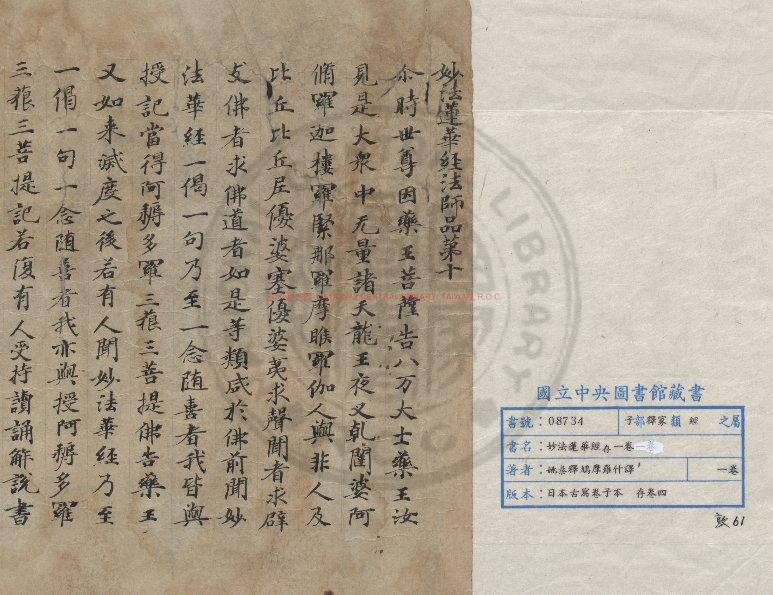 妙法蓮華經法師品第十
尒時世尊因藥王菩薩告八万大士藥王汝
見是大衆中无量諸天龍王夜叉乹闥婆阿
脩羅迦樓羅緊那羅摩睺羅伽人與非人及
比丘比丘尼優婆塞優婆夷求聲聞者求辟
支佛者求佛道者如是等類咸於佛前聞妙
法華經一偈一句乃至一念随喜者我皆與
授記當得阿耨多羅三藐三菩提佛告藥王
又如来滅度之後若有人聞妙法華經乃至
一偈一句一念随喜者我亦與授阿耨多羅
三藐三菩提記若復有人受持讀誦解説書
國立中央圖書館藏書
書號：08734 子部釋家類 經 之屬
書名：妙法蓮華經存一卷
著者：姚秦釋鳩摩羅什譯 一卷
版本：日本古寫卷子本 存卷四
敦61